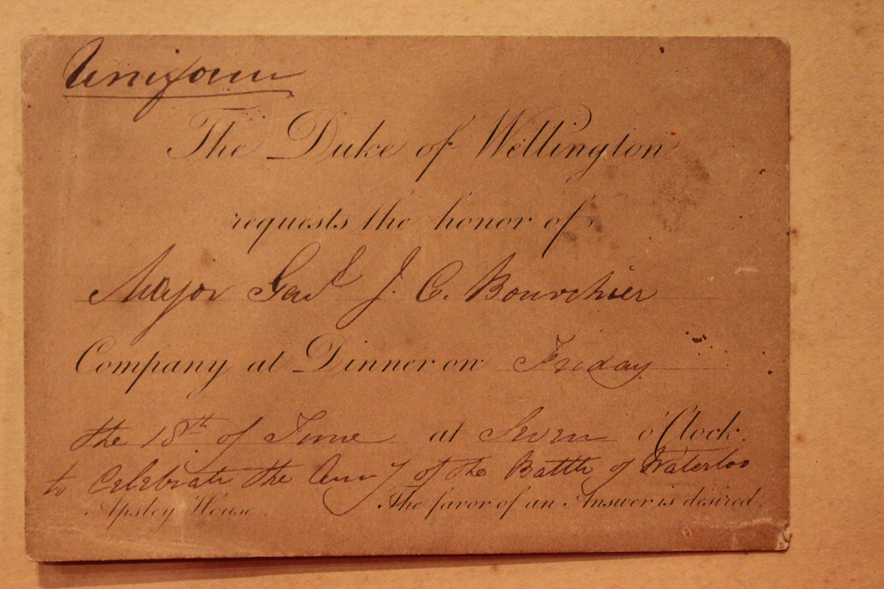 Uniform
The Duke of Wellington
requests the honor of
Major Genl J. C. Bourchier
Company at Dinner on Friday
the 18th of June at Seven o'Clock.
to Celebrate the Anny of the Battle of Waterloo
Apsley House. The favor of an Answer is desired.